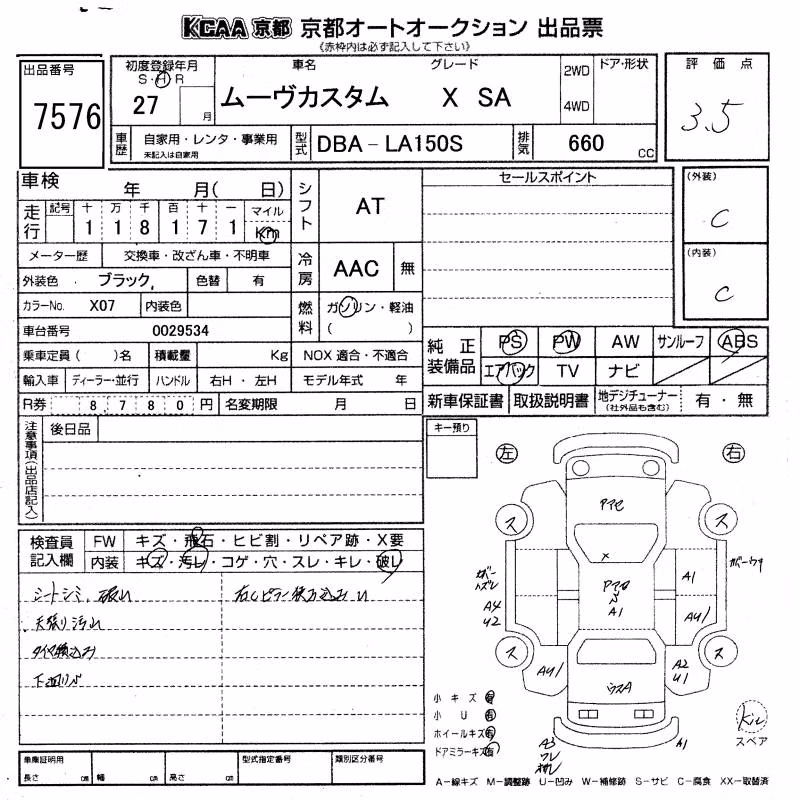 KCAA 京都 京都オートオークション 出品票
《赤枠内は必ず記入して下さい》
出品番号
7576
初度登録年月
S・H・R
27 月
車名 グレード
ムーヴカスタム X SA
2WD
4WD
ドア・形状
評価点
3.5
車歴
自家用・レンタ・事業用
未記入は自家用
型式
DBA－LA150S
排気
660 cc
車検 年 月( 日)
走行
記号 十 万 千 百 十 一 マイル
1 1 8 1 7 1 Km
シフト
AT
セールスポイント
(外装)
C
(内装)
C
メーター歴 交換車・改ざん車・不明車
外装色 ブラック, 色替 有
冷房
AAC 無
カラーNo. X07 内装色
燃料
ガソリン・軽油
( )
車台番号 0029534
乗車定員( )名 積載量 Kg NOX 適合・不適合
輸入車 ディーラー・並行 ハンドル 右H・左H モデル年式 年
R券 8,780円 名変期限 月 日
純正装備品
PS PW AW サンルーフ ABS
エアバック TV ナビ
新車保証書 取扱説明書 地デジチューナー
(社外品も含む)
有・無
注意事項(出品店記入)
後日品
キー預り
左 右
検査員記入欄
FW キズ・飛石・ヒビ割・リペア跡・X要
内装 キズ・汚レ・コゲ・穴・スレ・キレ・破レ
シートシミ、破レ
天張り汚レ
タイヤ積込み
下廻りサビ
ス ス
アマセ
×
A1
A1
A4
U2
AU1
ス ス
AU1
A2
U1
ウスA
小キズ 有
小U 有
ホイールキズ 有
ドアミラーキズ 有
A3
A1
キル
スペア
車庫証明用
長さ cm 幅 cm 高さ cm
型式指定番号 類別区分番号
A－線キズ M－調整跡 U－凹み W－補修跡 S－サビ C－腐食 XX－取替済